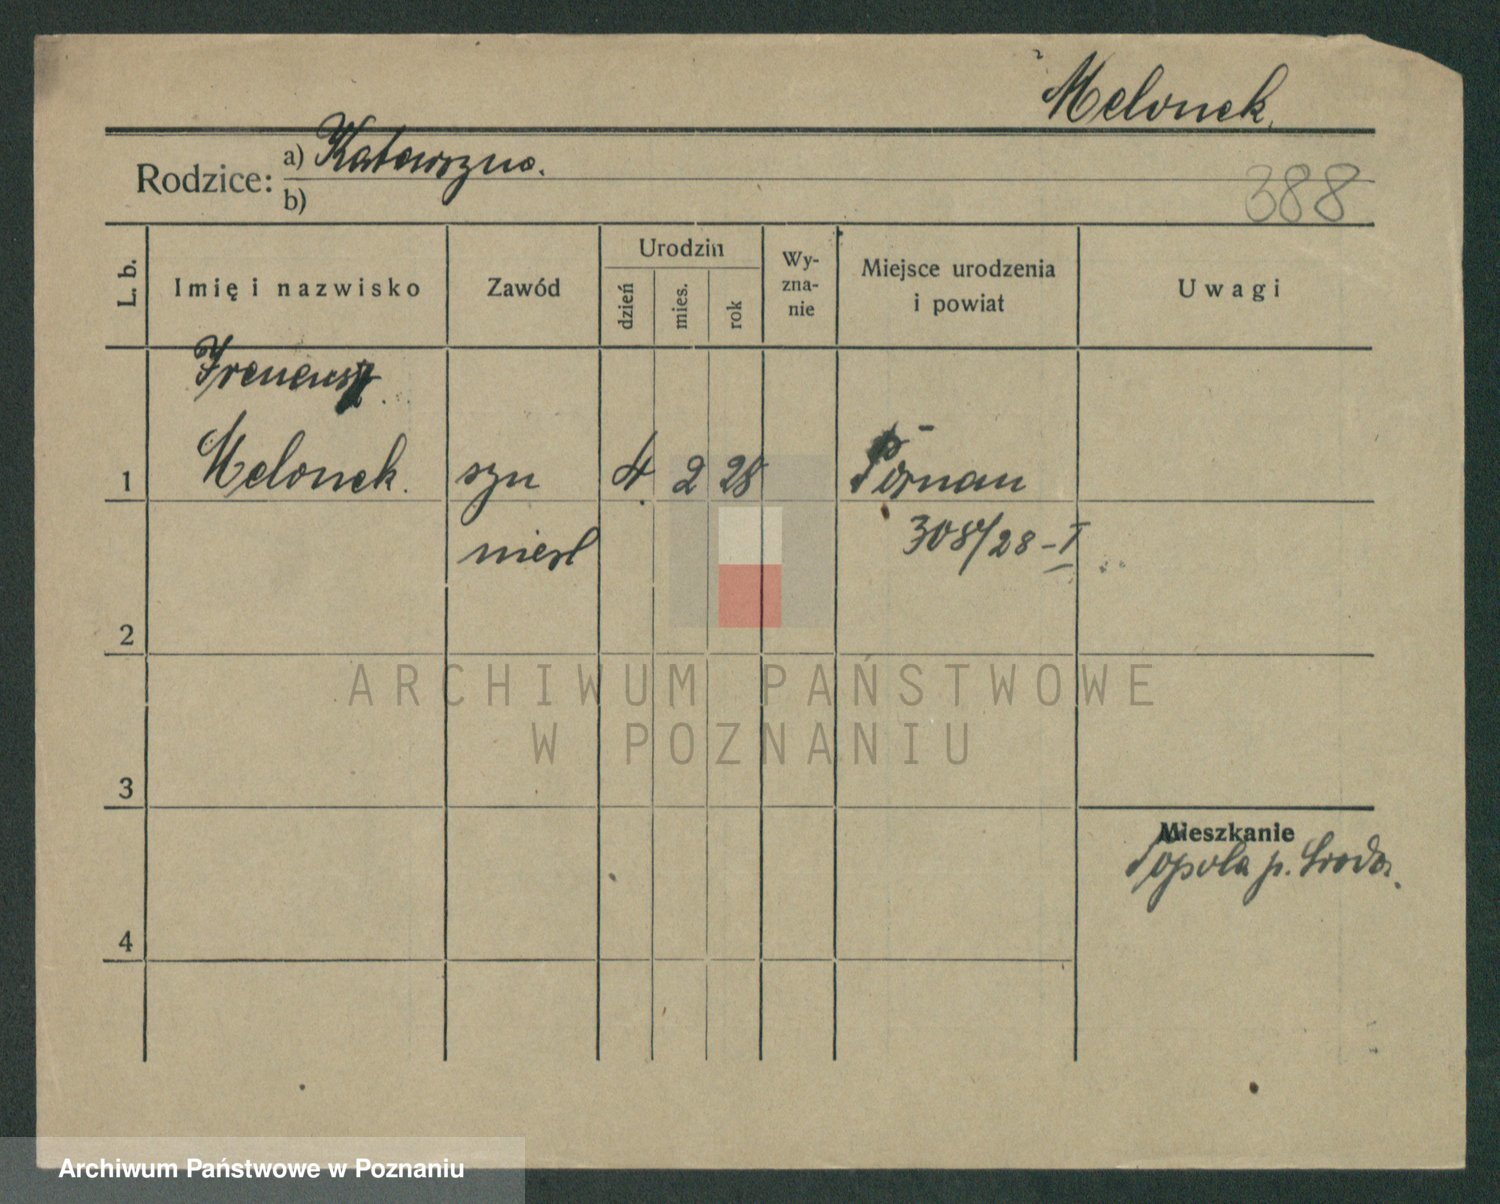 Melonek.
Rodzice: a) Katarzyna.
b)
388
L. b.
Imię i nazwisko
Zawód
Urodzin
dzień
mies.
rok
Wy-
zna-
nie
Miejsce urodzenia
i powiat
Uwagi
Ireneusz
1 Melonek. syn 4 2 28 Poznań
niesl 308/28-I
2
3
4
Mieszkanie
Topola p. Środa.
ARCHIWUM PAŃSTWOWE
W POZNANIU
Archiwum Państwowe w Poznaniu